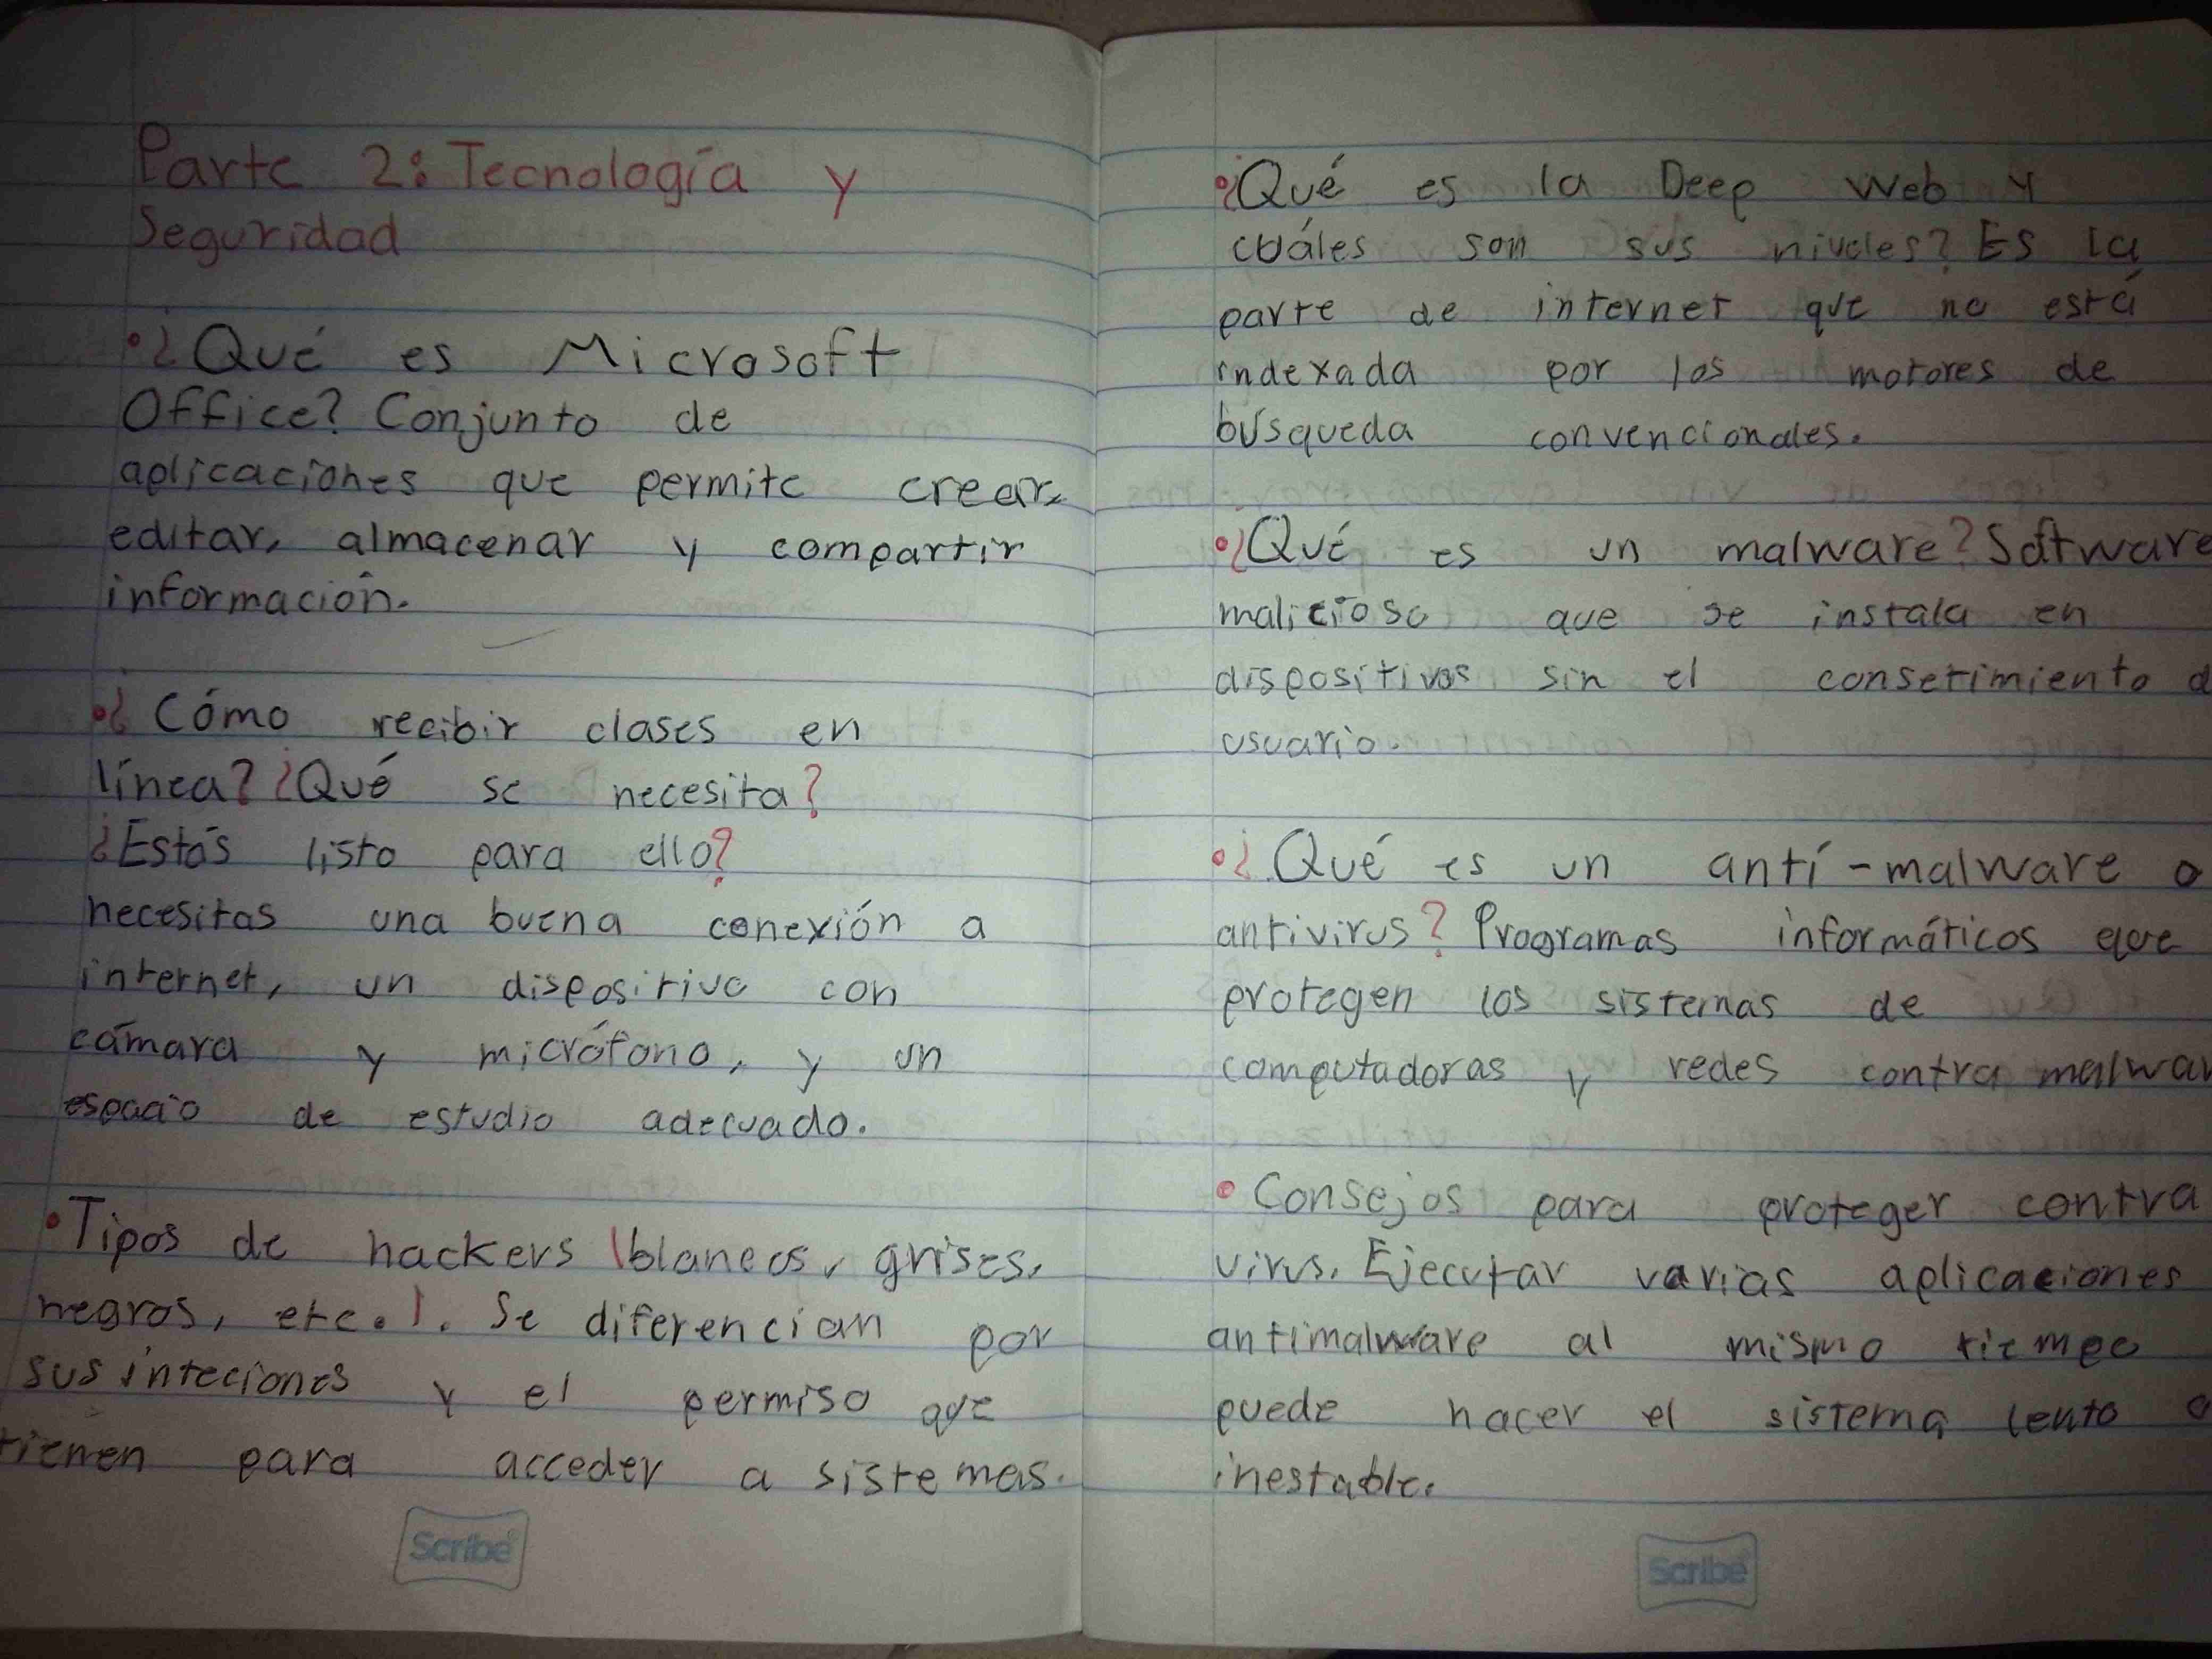 Parte 2: Tecnología y
Seguridad
•¿Qué es Microsoft
Office? Conjunto de
aplicaciones que permite crear,
editar, almacenar y compartir
información.
•¿Cómo recibir clases en
línea? ¿Qué se necesita?
¿Estás listo para ello?
necesitas una buena conexión a
internet, un dispositivo con
cámara y micrófono, y un
espacio de estudio adecuado.
•Tipos de hackers (blancos, grises,
negros, etc.). Se diferencian por
sus inteciones y el permiso que
tienen para acceder a sistemas.
Scribe
•¿Qué es la Deep Web y
cuáles son sus niveles? Es la
parte de internet que no está
indexada por los motores de
búsqueda convencionales.
•¿Qué es un malware? Software
malicioso que se instala en
dispositivos sin el consetimiento d
usuario.
•¿Qué es un anti-malware o
antivirus? Programas informáticos que
protegen los sistemas de
computadoras y redes contra malwar
•Consejos para proteger contra
virus. Ejecutar varias aplicaciones
antimalware al mismo tiempo
puede hacer el sistema lento o
inestable.
Scribe